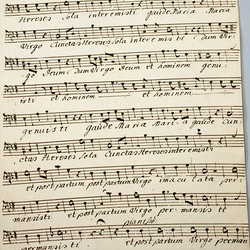 Hereses sola interemisti gaude Maria Maria
Virgo Cunctas Hereses Sola interemisti : dum Vir
go Deum : dum Virgo Deum et hominem genu
isti et hominem et hominem
genuisti gaude Maria Maria gaude Cun
ctas Hereses Sola Cunctas Hereses interemisti
et post partum post partum Virgo imaculata per
mansisti et post partum Virgo permansisti
piano
permansisti et post partum Virgo perman